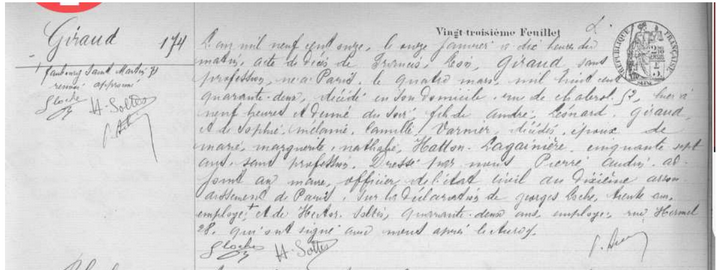 Vingt troisième Feuillet
Giraud 174
L'an mil neuf cent onze, le onze Janvier à dix heures du
matin, acte de décès de Giraud sans
profession, né à Paris, le quatre mars, mil huit cent
quarante-deux, décédé en son domicile, rue de Chabrol
neuf heures et demie du soir; fils de André, Léonard, Giraud,
et de Sophie, Mélanie, Camille, Varnier, décédés, époux de
marie, marguerite, nathalie, Hatton-Lagainière, cinquante sept
ans, sans profession. Dressé par nous Pierre ad-
joint au maire, officier de l'état civil du dixième arron-
dissement de Paris, sur la déclaration de georges trente ans,
employé, et de quarante-deux ans, employé, rue Hermel
28, qui ont signé avec nous après lecture.
faubourg Saint Martin 71
REPUBLIQUE FRANÇAISE